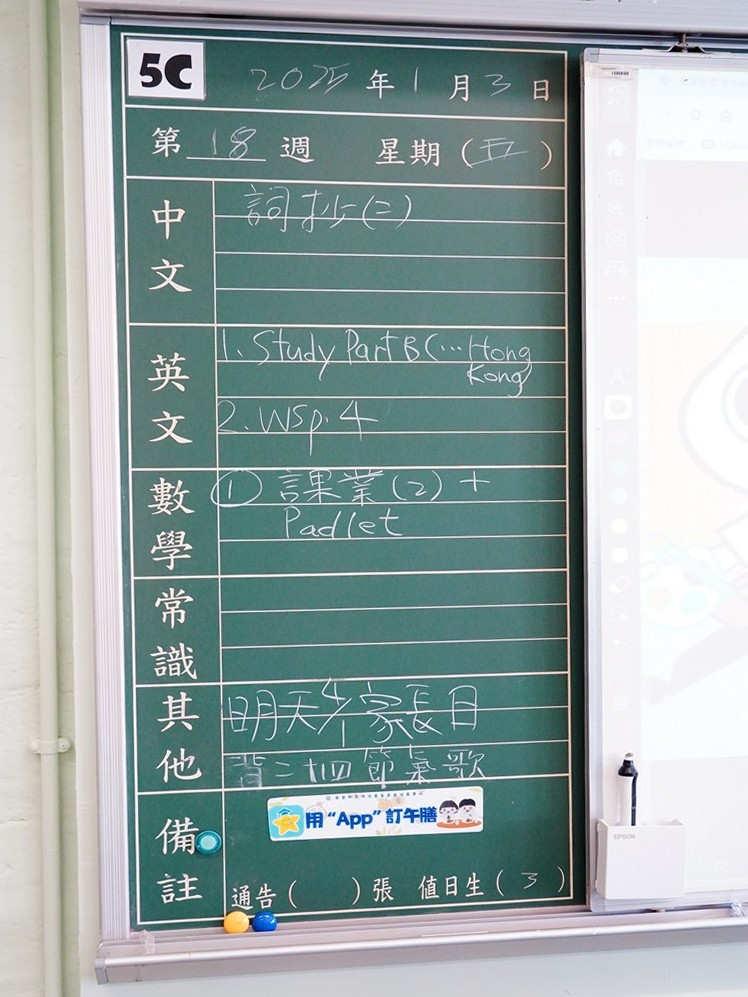 5C
2025年1月3日
第18週 星期(五)
中文
詞抄(二)
英文
1. Study Part B (…Hong
Kong
2. WS p. 4
數學
① 課業(2) +
Padlet
常識
其他
明天4/1家長日
背二十四節氣歌
備註
用“App”訂午膳
通告( )張 值日生(3)
EPSON